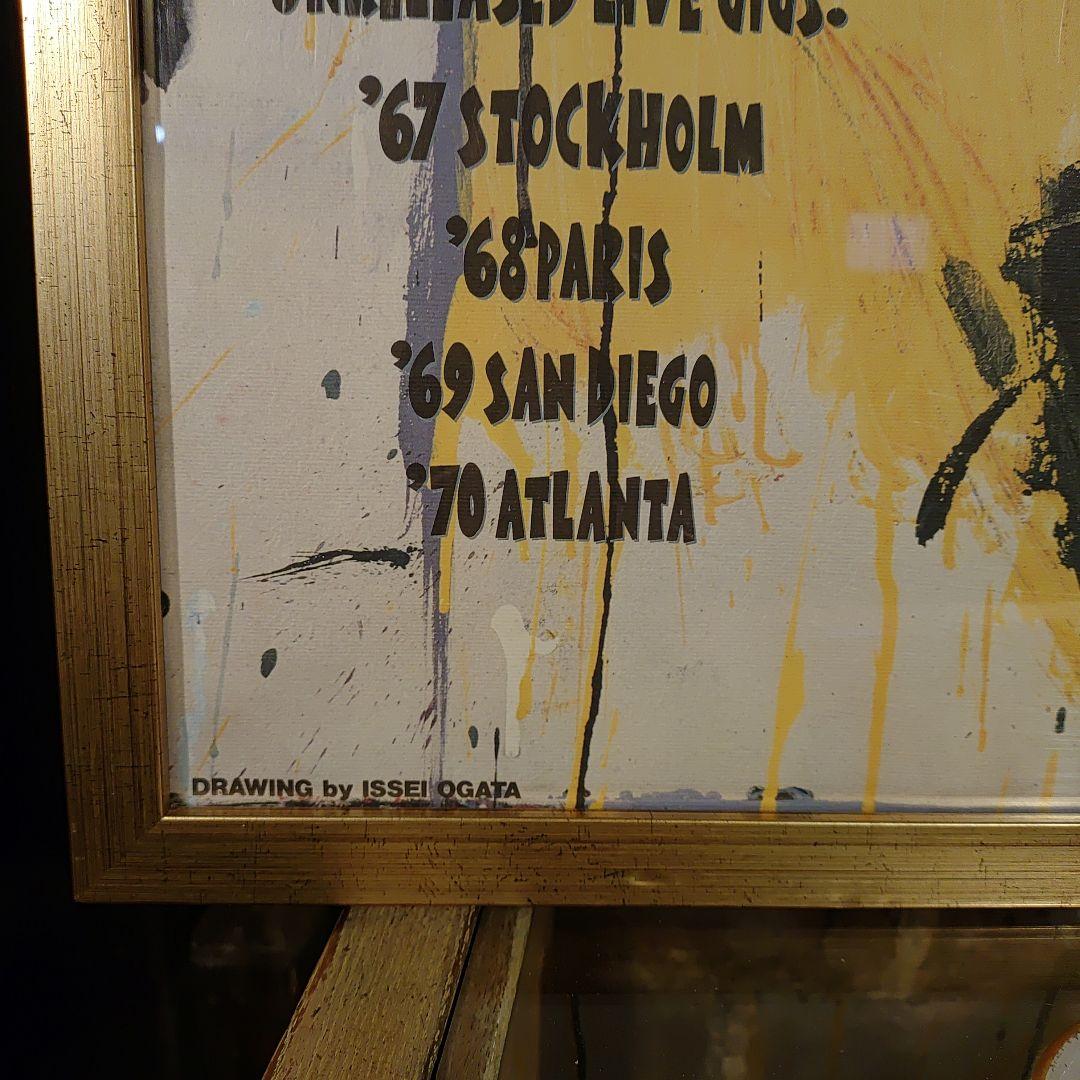 UNRELEASED LIVE GIGS.
'67 STOCKHOLM
'68 PARIS
'69 SAN DIEGO
'70 ATLANTA
DRAWING by ISSEI OGATA